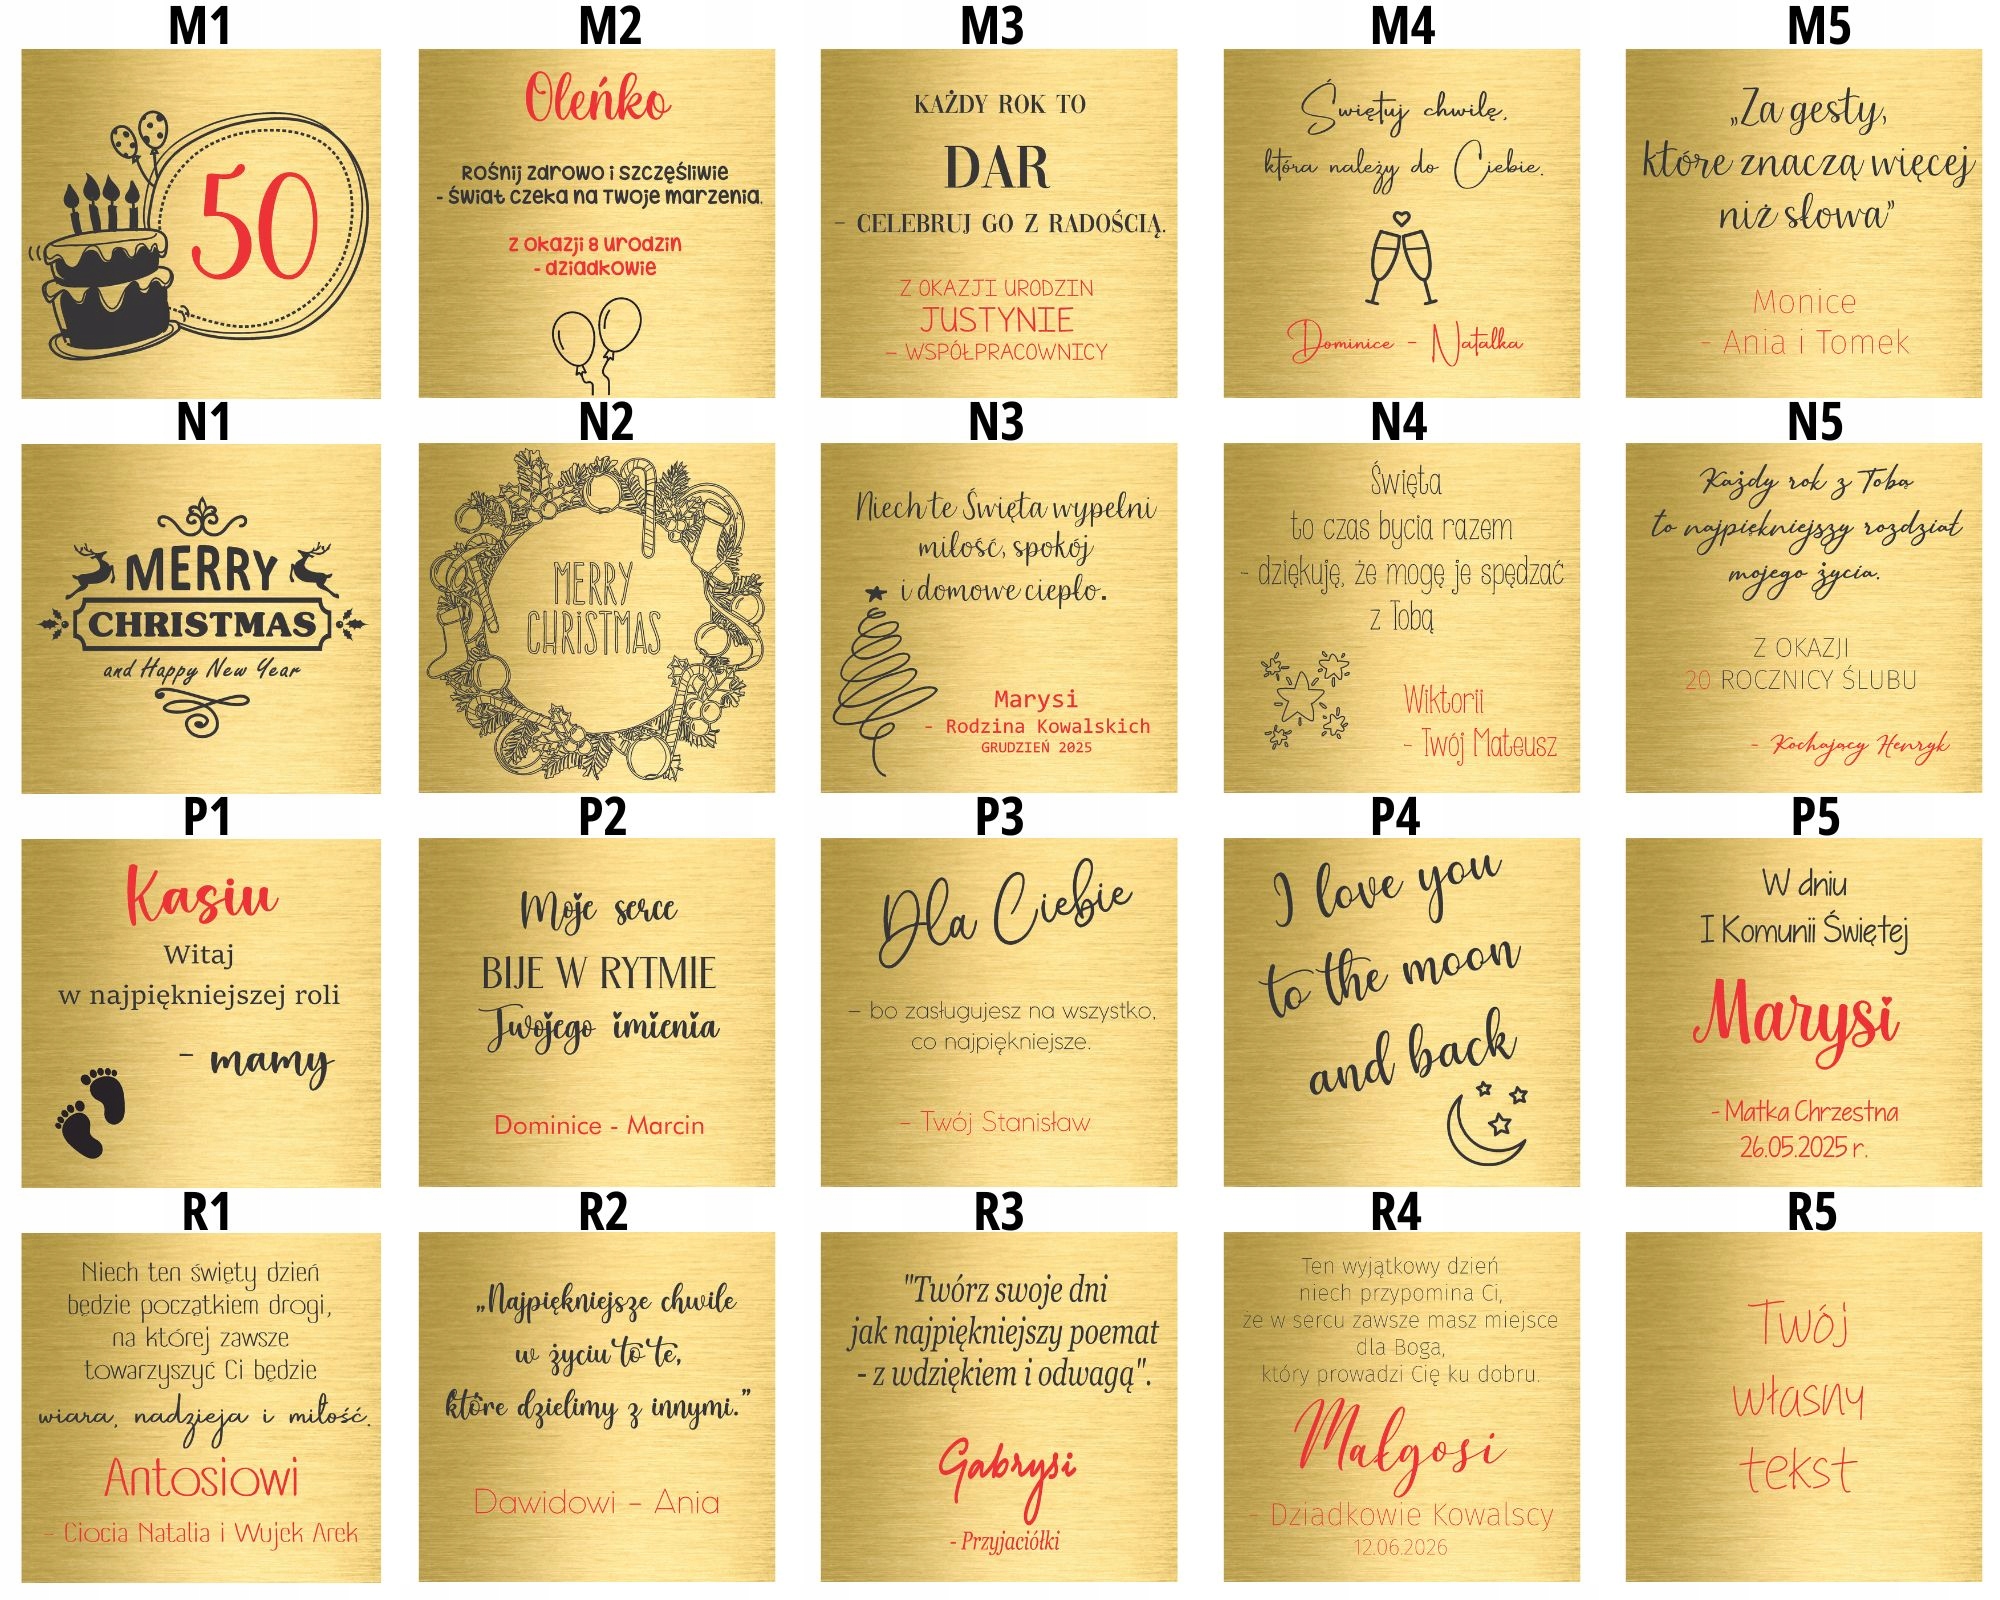 M1
50
M2
Oleńko
Rośnij zdrowo i szczęśliwie
- świat czeka na Twoje marzenia.
z okazji 8 urodzin
- dziadkowie
M3
KAŻDY ROK TO
DAR
- CELEBRUJ GO Z RADOŚCIĄ.
Z OKAZJI URODZIN
JUSTYNIE
- WSPÓŁPRACOWNICY
M4
Świętuj chwilę,
która należy do Ciebie.
Dominice - Natalka
M5
„Za gesty,
które znaczą więcej
niż słowa”
Monice
- Ania i Tomek
N1
MERRY
CHRISTMAS
and Happy New Year
N2
MERRY
CHRiSTMAS
N3
Niech te Święta wypełni
miłość, spokój
i domowe ciepło.
Marysi
- Rodzina Kowalskich
GRUDZIEŃ 2025
N4
Święta
to czas bycia razem
- dziękuję, że mogę je spędzać
z Tobą
Wiktorii
- Twój Mateusz
N5
Każdy rok z Tobą
to najpiękniejszy rozdział
mojego życia.
Z OKAZJI
20 ROCZNICY ŚLUBU
- Kochający Henryk
P1
Kasiu
Witaj
w najpiękniejszej roli
- mamy
P2
Moje serce
BIJE W RYTMIE
Twojego imienia
Dominice - Marcin
P3
Dla Ciebie
- bo zasługujesz na wszystko,
co najpiękniejsze.
- Twój Stanisław
P4
I love you
to the moon
and back
P5
W dniu
I Komunii Świętej
Marysi
- Matka Chrzestna
26.05.2025 r.
R1
Niech ten święty dzień
będzie początkiem drogi,
na której zawsze
towarzyszyć Ci będzie
wiara, nadzieja i miłość.
Antosiowi
- Ciocia Natalia i Wujek Arek
R2
„Najpiękniejsze chwile
w życiu to te,
które dzielimy z innymi.”
Dawidowi - Ania
R3
"Twórz swoje dni
jak najpiękniejszy poemat
- z wdziękiem i odwagą".
Gabrysi
- Przyjaciółki
R4
Ten wyjątkowy dzień
niech przypomina Ci,
że w sercu zawsze masz miejsce
dla Boga,
który prowadzi Cię ku dobru.
Małgosi
- Dziadkowie Kowalscy
12.06.2026
R5
Twój
własny
tekst